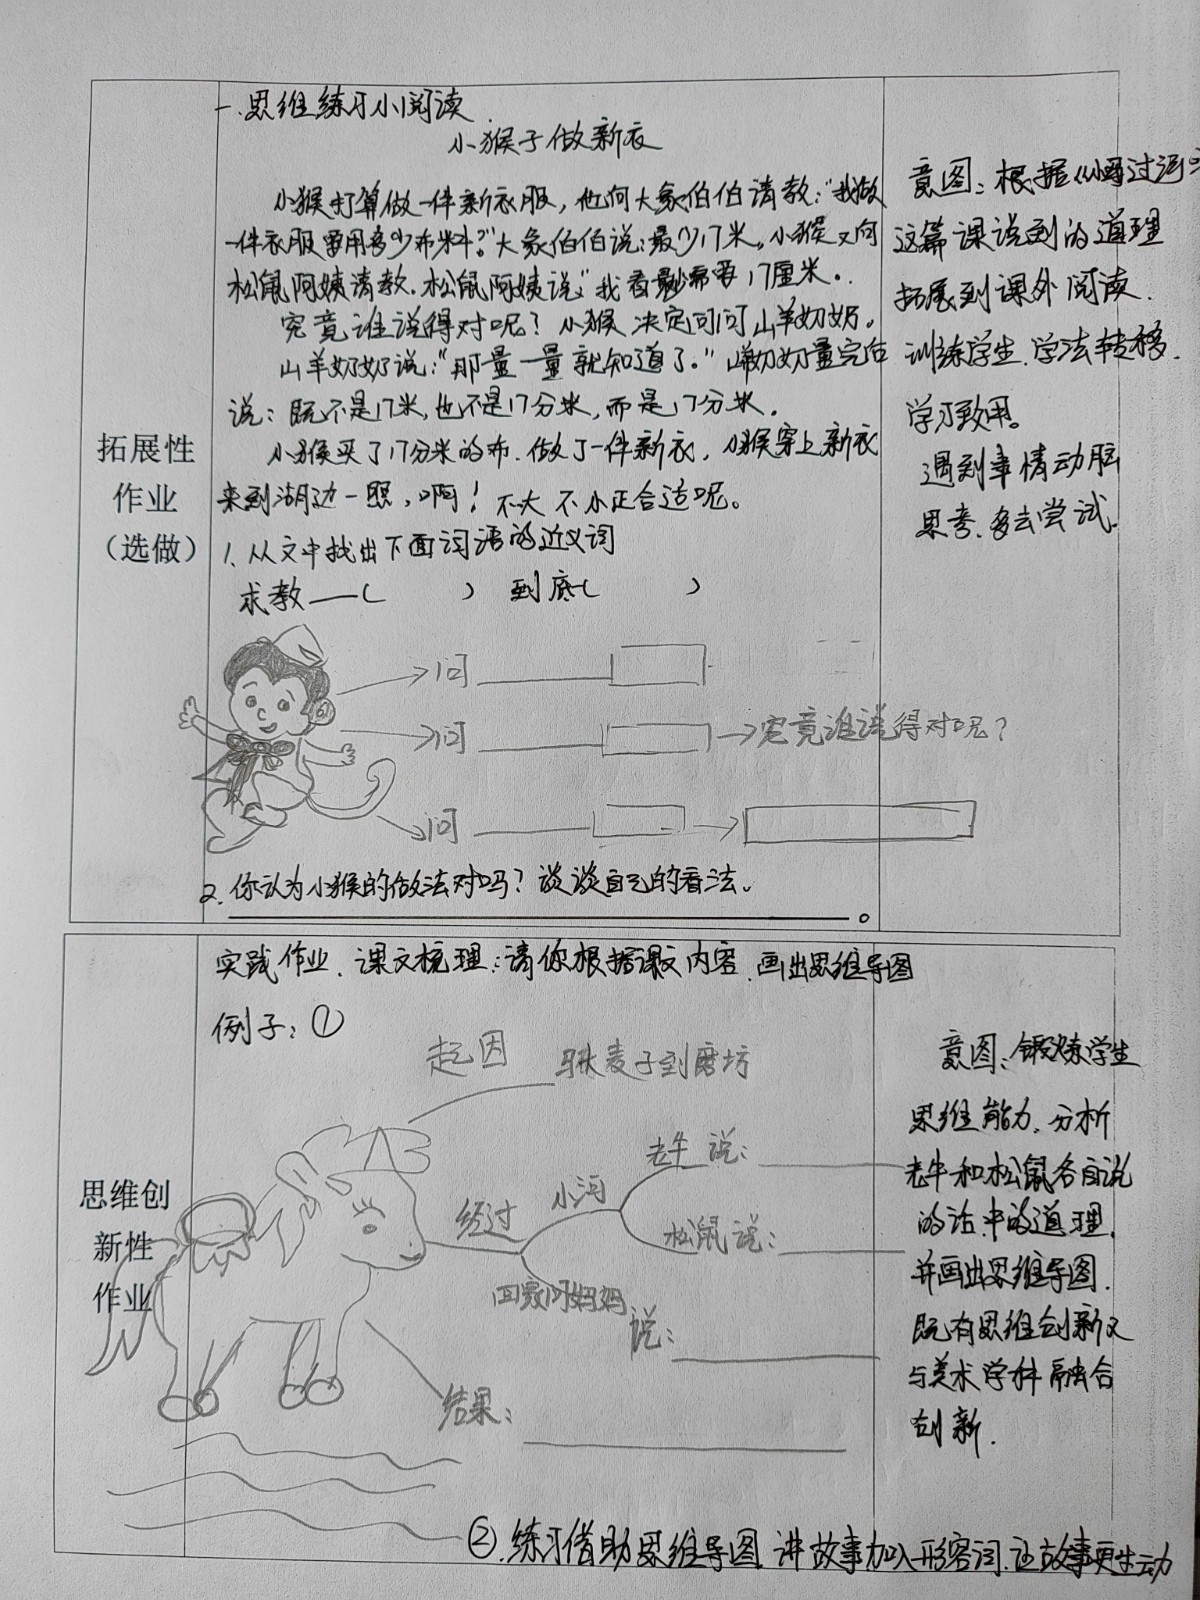 拓展性
作业
（选做）
一.思维练习小阅读
小猴子做新衣
小猴打算做一件新衣服，他向大象伯伯请教：“我做
一件衣服要用多少布料？”大象伯伯说：最少17米。小猴又向
松鼠阿姨请教．松鼠阿姨说：“我看最少需要17厘米．
究竟谁说得对呢？小猴决定问问山羊奶奶。
山羊奶奶说：“那量一量就知道了。”山羊奶奶量完后
说：既不是17米，也不是17分米，而是17分米．
小猴买了17分米的布．做了一件新衣，小猴穿上新衣
来到湖边一照，啊！不大不小正合适呢。
1.从文中找出下面词语的近义词
求教—（ ） 到底（ ）
问
问 究竟谁说得对呢？
问
2.你认为小猴的做法对吗？谈谈自己的看法。
。
意图：根据《小马过河
这篇课说到的道理
拓展到课外阅读．
训练学生．学法转移．
学习致用。
遇到事情动脑
思考．多去尝试．
思维创
新性
作业
实践作业．课文梳理：请你根据课文内容．画出思维导图
例子：①
起因 驮麦子到磨坊
老牛 说：
经过 小河
松鼠 说：
回家问妈妈
说：
结果：
②.练习借助思维导图．讲故事加入形容词．让故事更生动
意图：锻炼学生
思维能力．分析
老牛和松鼠各自说
的话中的道理．
并画出思维导图．
既有思维创新又
与美术学科融合
创新．